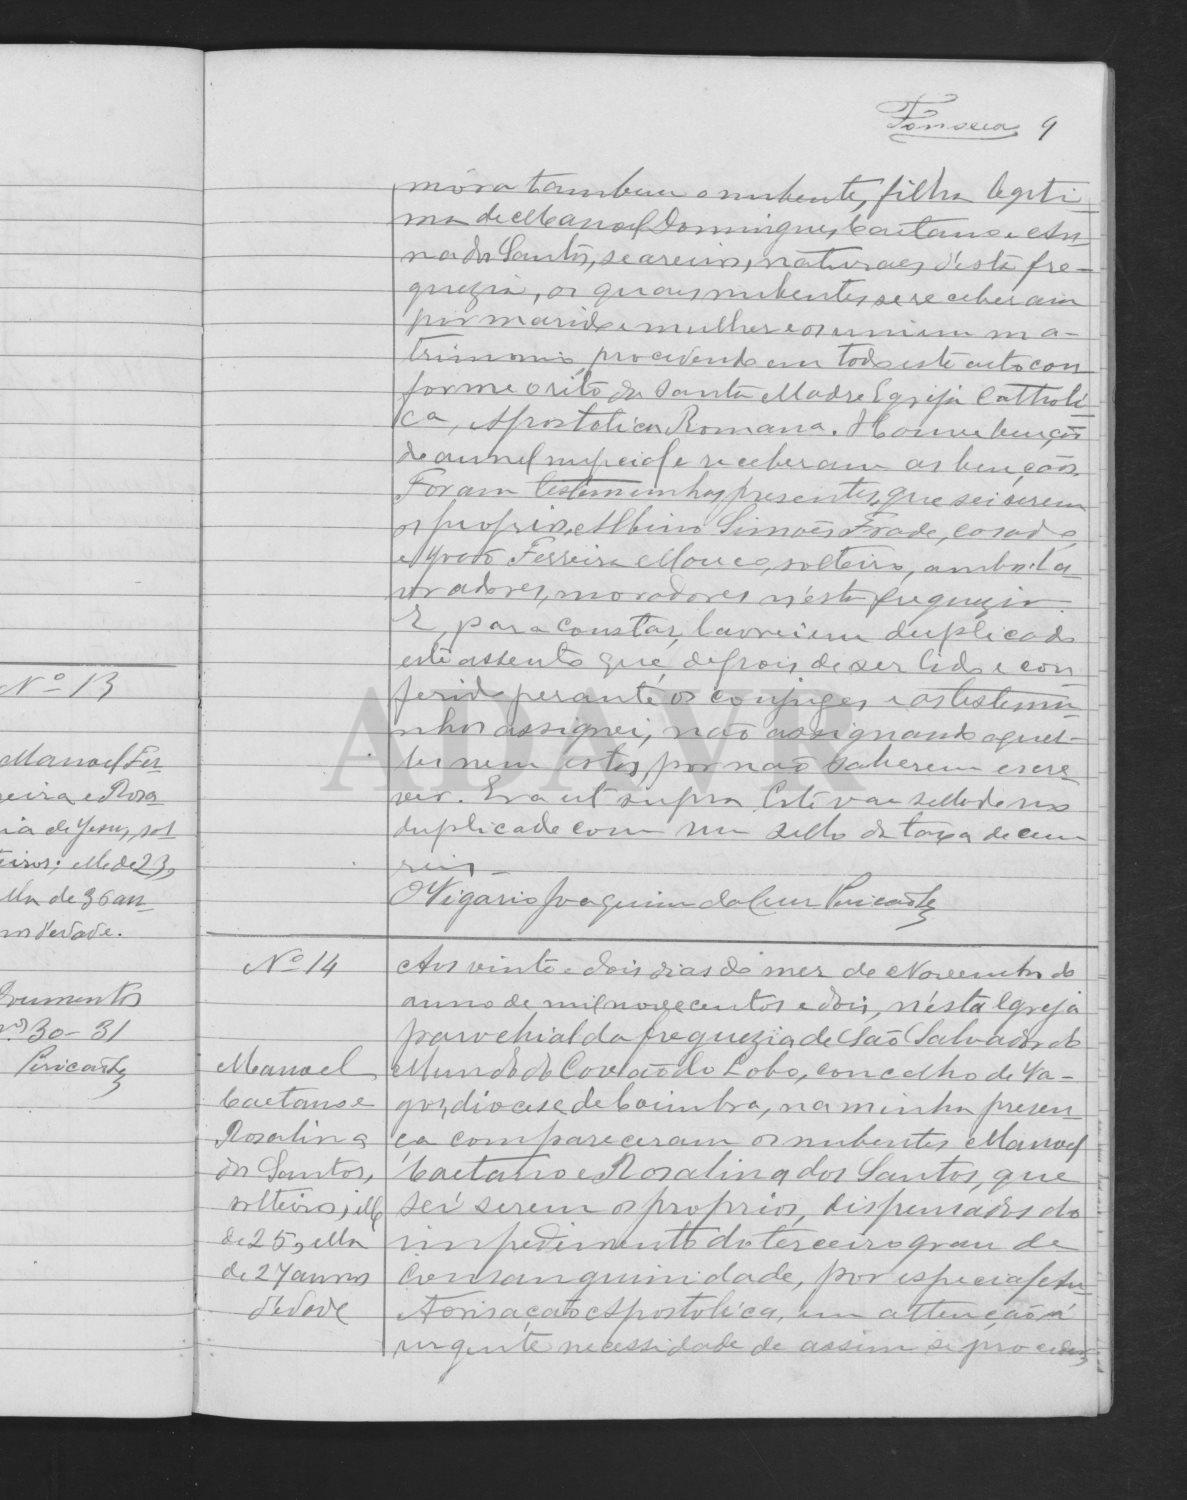 Fonseca 9
móra tambem o nubente, filha legiti-
ma de Manoel Domingues Caetano e An-
na dos Santos, seareiros, naturaes d'esta fre-
guezia, os quaes nubentes se receberam
por marido e mulher e os uni em ma-
trimonio, procedendo em todo este acto con
forme o rito da Santa Madre Egreja Catholi-
ca, Apostolica Romana. Houve benção
de annel nupcial e receberam as bençãos.
Foram testemunhas presentes, que sei serem
os proprios, Albino Simões Frade, casado,
e João Ferreira Mouco, solteiro, ambos la-
vradores, moradores n'esta freguezia.
E, para constar, lavrei em duplicado
este assento que, depois de ser lido e con-
ferido perante os conjuges e as testemu-
nhas assignei, não assignando aquel-
les nem estas, por não saberem escre-
ver. Era ut supra. Este vae sellado no
duplicado com um sello da taxa de cem
reis.
O Vigario Joaquim da Cruz Pericarto
Nº 13
Manoel Fer
reira e Rosa
ria de Jesus, sol
teiros; elle de 23,
ella de 36 an-
nos d'edade.
Documentos
nos 30-31
Pericarto
Nº 14
Manoel
Caetano e
Rosalina
dos Santos,
solteiros; elle
de 25, ella
de 27 annos
d'edade
Aos vinte e dois dias do mez de Novembro do
anno de mil novecentos e dois, n'esta Egreja
parochial da freguezia de São Salvador do
Mundo do Covão do Lobo, concelho de Va-
gos, diocese de Coimbra, na minha presen-
ça compareceram os nubentes Manoel
Caetano e Rosalina dos Santos, que
sei serem os proprios, dispensados do
impedimento do terceiro grau de
Consanguinidade, por especial Au-
torisação Apostolica, em attenção á
urgente necessidade de assim se proceder,
ADAVR